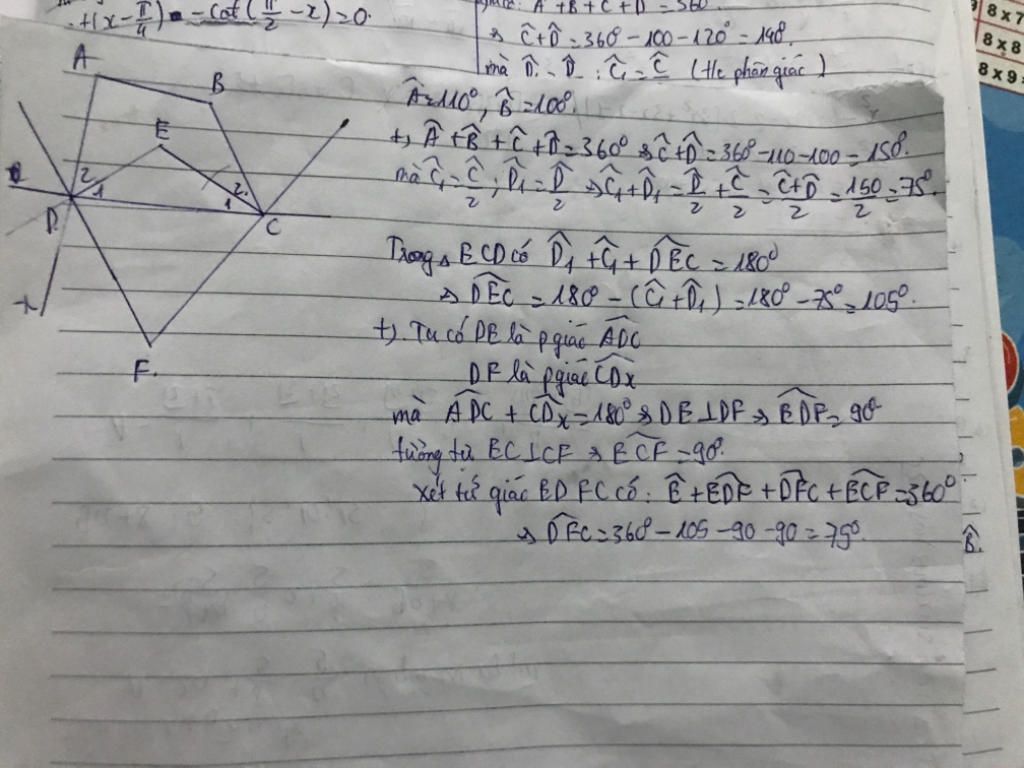 +(x - π/4) = -cot(π/2 - x) = 0.
A + B + C + D = 360
⇒ Ĉ+D̂ = 360 - 100 - 120° = 140°.
mà D̂₁ = D̂ ; Ĉ₁ = Ĉ (t/c phân giác)
8 x 7
8 x 8
8 x 9 =
Â = 110°, B̂ = 100°
+) Â + B̂ + Ĉ + D̂ = 360° ⇒ Ĉ+D̂ = 360 - 110 - 100 = 150°.
mà Ĉ₁ = Ĉ/2 ; D̂₁ = D̂/2 ⇒ Ĉ₁ + D̂₁ = D̂/2 + Ĉ/2 = (Ĉ+D̂)/2 = 150/2 = 75°.
Trong △ ECD có D̂₁ + Ĉ₁ + DEC = 180°
⇒ DEC = 180° - (Ĉ₁ + D̂₁) = 180° - 75° = 105°.
+). Ta có DE là pgiác ADC
DF là pgiác CDx
mà ADC + CDx = 180° ⇒ DE⊥DF ⇒ EDF = 90°
tương tự EC⊥CF ⇒ ECF = 90°.
Xét tứ giác EDFC có: Ê + EDF + DFC + ECF = 360°
⇒ DFC = 360 - 105 - 90 - 90 = 75°.
B̂.
A
B
E
2
1
2
1
D
C
x
F.